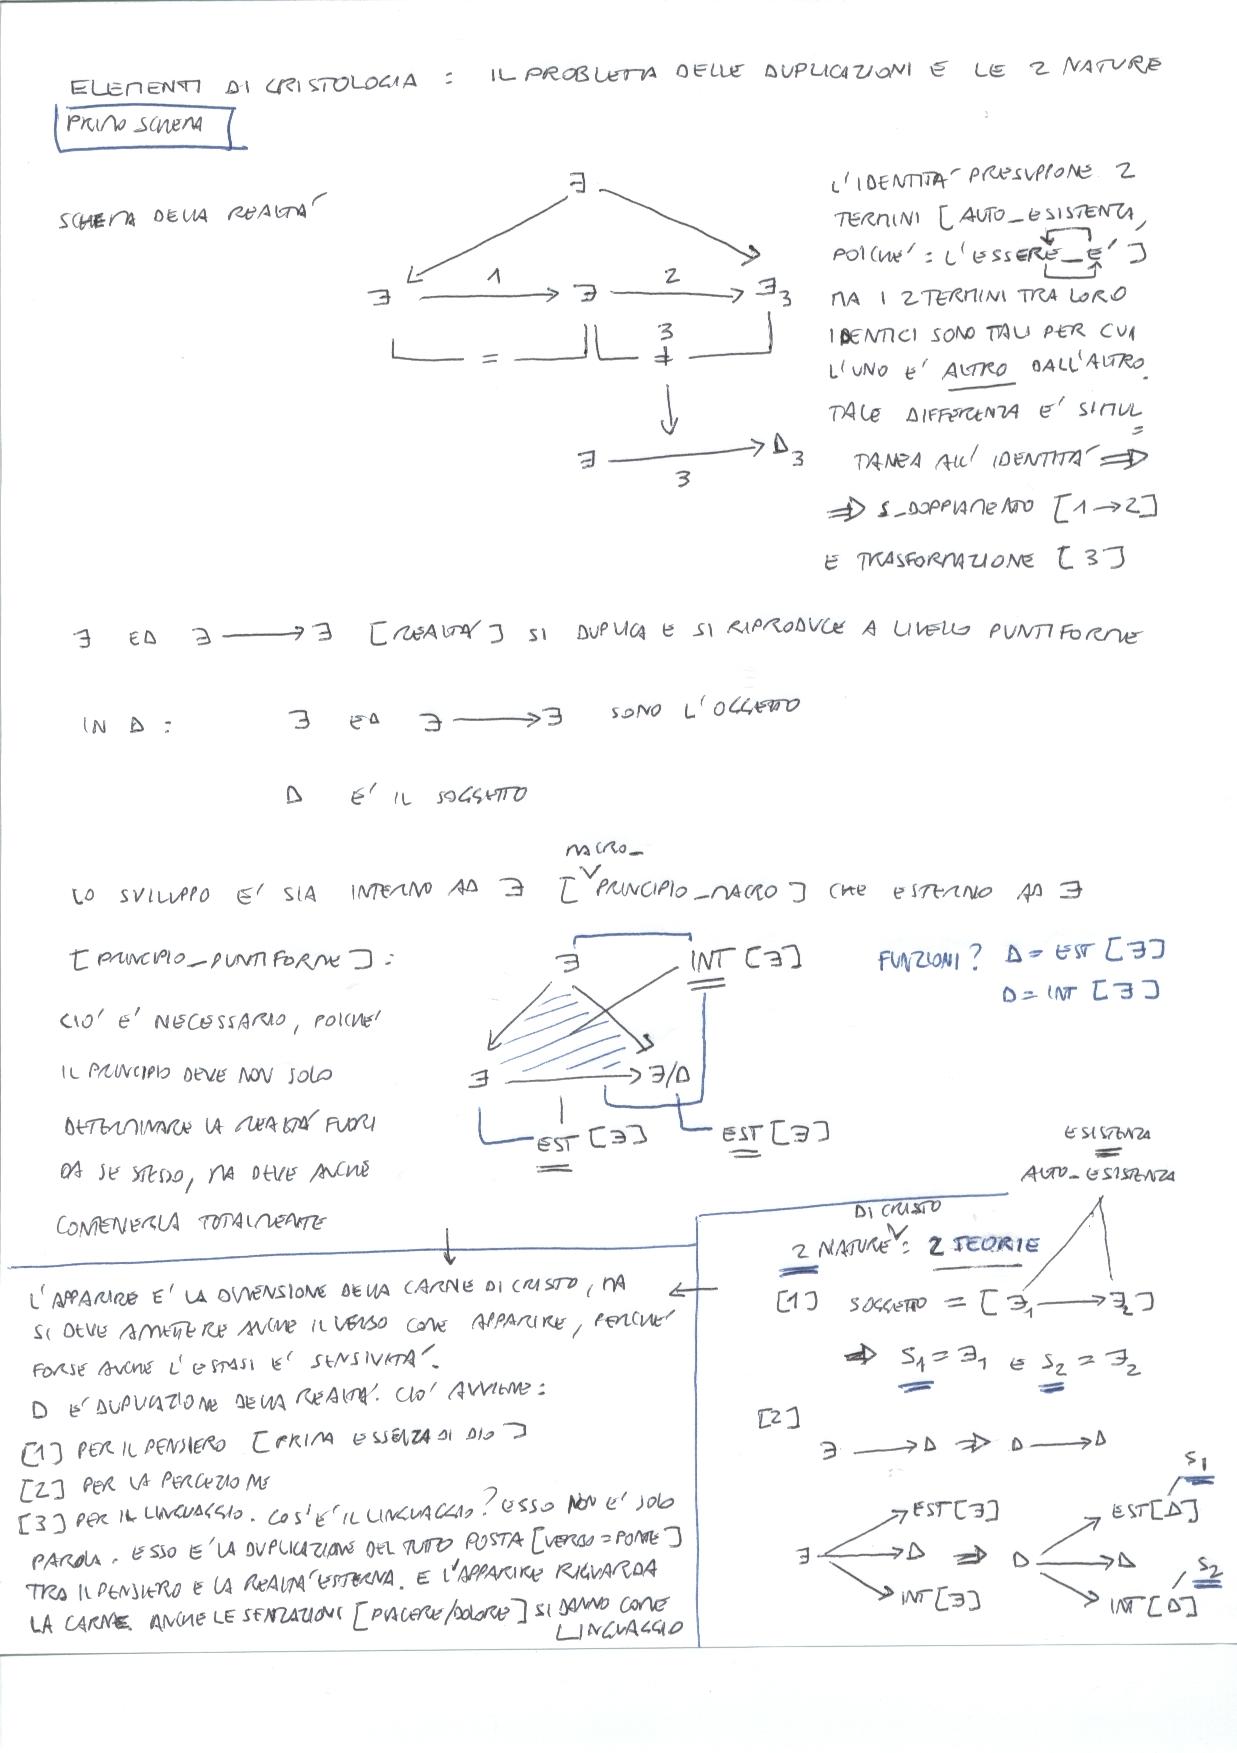 ELEMENTI DI CRISTOLOGIA : IL PROBLEMA DELLE DUPLICAZIONI E LE 2 NATURE
PRIMO SCHEMA
SCHEMA DELLA REALTA'
∃
∃ 1 ∃ 2 ∃3
= 3 ≠
∃ 3 Δ3
L'IDENTITA' PRESUPPONE 2
TERMINI [AUTO_ESISTENZA,
POICHE' : L'ESSERE_E']
MA I 2 TERMINI TRA LORO
IDENTICI SONO TALI PER CUI
L'UNO E' ALTRO DALL'ALTRO.
TALE DIFFERENZA E' SIMUL=
TANEA ALL'IDENTITA' ⇒
⇒ S_DOPPIAMENTO [1→2]
E TRASFORMAZIONE [3]
∃ ED ∃ → ∃ [REALTA'] SI DUPLICA E SI RIPRODUCE A LIVELLO PUNTIFORME
IN Δ : ∃ ED ∃ → ∃ SONO L'OGGETTO
Δ E' IL SOGGETTO
MACRO_
LO SVILUPPO E' SIA INTERNO AD ∃ [PRINCIPIO_MACRO] CHE ESTERNO AD ∃
[PRINCIPIO_PUNTIFORME] :
CIO' E' NECESSARIO, POICHE'
IL PRINCIPIO DEVE NON SOLO
DETERMINARE LA REALTA' FUORI
DA SE STESSO, MA DEVE ANCHE
CONTENERLA TOTALMENTE
∃ INT [∃]
∃ → ∃/Δ
EST [∃] EST [∃]
FUNZIONI? Δ = EST [∃]
Δ = INT [∃]
ESISTENZA
AUTO_ESISTENZA
DI CRISTO
2 NATURE : 2 TEORIE
[1] SOGGETTO = [∃1 → ∃2]
⇒ S1 = ∃1 E S2 = ∃2
[2]
∃ → Δ ⇒ Δ → Δ
S1
EST [∃] EST [Δ]
∃ → Δ ⇒ Δ → Δ
S2
INT [∃] INT [Δ]
L'APPARIRE E' LA DIMENSIONE DELLA CARNE DI CRISTO, MA
SI DEVE AMETTERE ANCHE IL VERSO COME APPARIRE, PERCHE'
FORSE ANCHE L'ESTASI E' SENSIVITA'.
Δ E' DUPLICAZIONE DELLA REALTA'. CIO' AVVIENE :
[1] PER IL PENSIERO [PRIMA ESSENZA DI DIO]
[2] PER LA PERCEZIONE
[3] PER IL LINGUAGGIO. COS'E' IL LINGUAGGIO? ESSO NON E' SOLO
PAROLA. ESSO E' LA DUPLICAZIONE DEL TUTTO POSTA [VERSO = PONTE]
TRA IL PENSIERO E LA REALTA' ESTERNA. E L'APPARIRE RIGUARDA
LA CARNE. ANCHE LE SENSAZIONI [PIACERE/DOLORE] SI DANNO COME
LINGUAGGIO